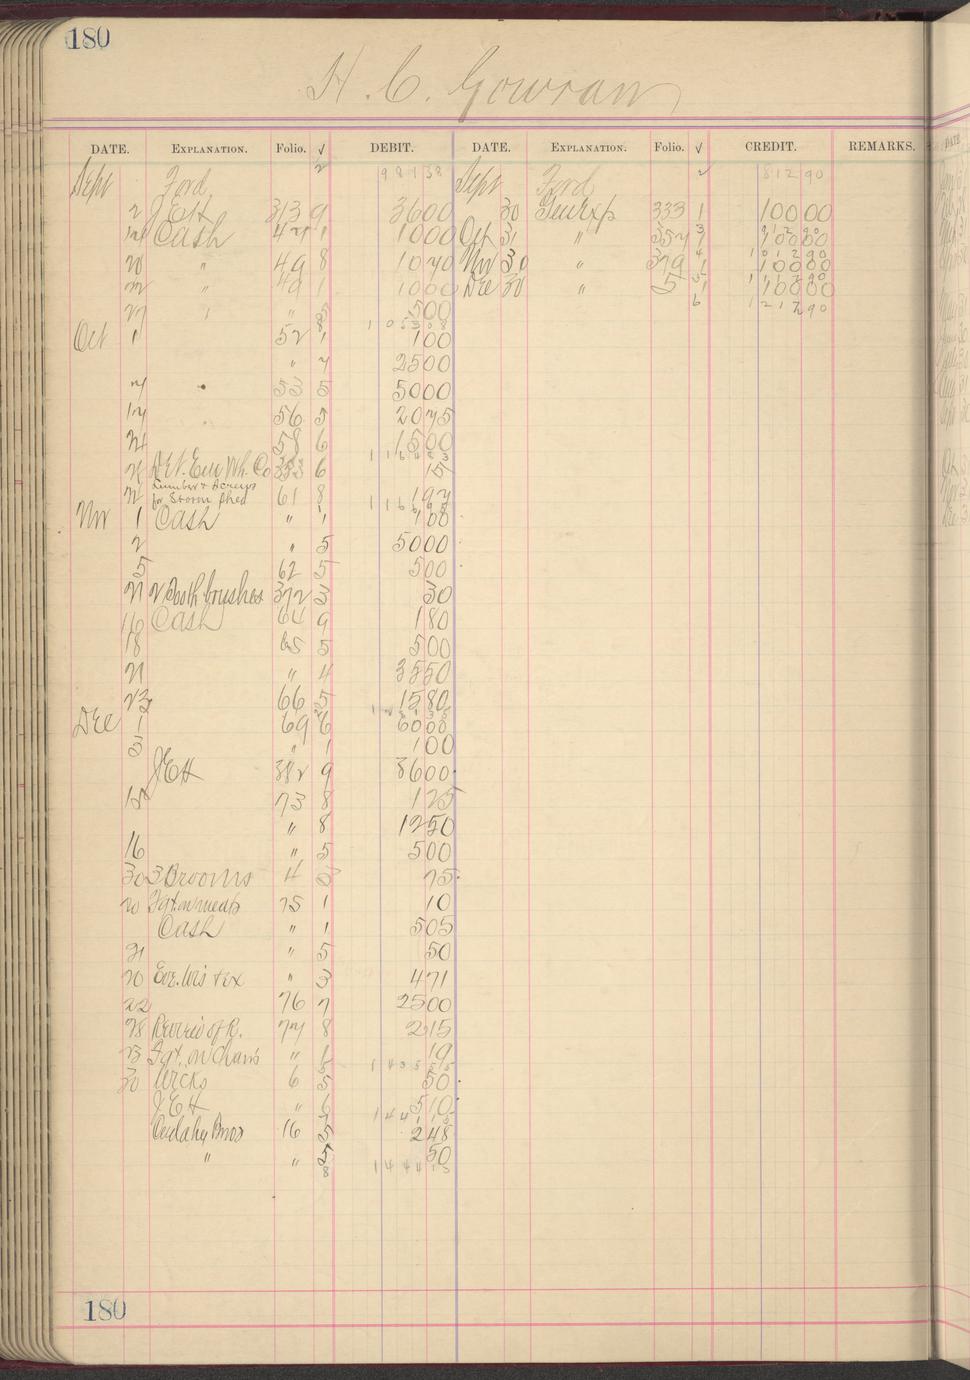 180
H. C. Gowran
DATE. EXPLANATION. Folio. √ DEBIT. DATE. EXPLANATION. Folio. √ CREDIT. REMARKS.
Sept Ford 2 981 38 Sept Ford 2 812 90
2 JEH 313 9 36 00 30 Gen Exp 333 1 100 00
Cash 47 1 10 00 Oct 31 " 357 1 100 00
20 " 49 8 10 70 Nov 30 " 379 1 100 00
" 49 1 10 00 Dec 30 " 5 1 100 00
27 " " 5 00 6 1 212 90
1 053 08
Oct 1 52 1 1 00
" 7 25 00
7 " 53 5 50 00
17 56 5 20 75
24 58 6 15 00
353 6 15
Lumber & Screws
for Storm Shed 61 8 1 97
Nov 1 Cash " 1 1 00
2 " 5 50 00
5 62 5 5 00
2 Tooth brushes 372 3 30
16 Cash 64 9 1 80
18 65 5 5 00
21 " 4 35 50
23 66 5 15 80
Dec 1 69 6 60 00
3 " 1 1 00
JEH 382 9 36 00
73 8 1 25
" 8 12 50
16 " 5 5 00
30 3 Brooms 4 5 75
20 75 1 10
Cash " 1 5 05
21 " 5 50
20 " 3 4 71
22 76 7 25 00
28 77 8 2 15
23 Fgt. on Chairs " 1 19
1 435
30 Wicks 6 5 50
JEH " 6 5 10
Cudahy Bros 16 5 2 48
" " 5 50
8 1 444 15
180